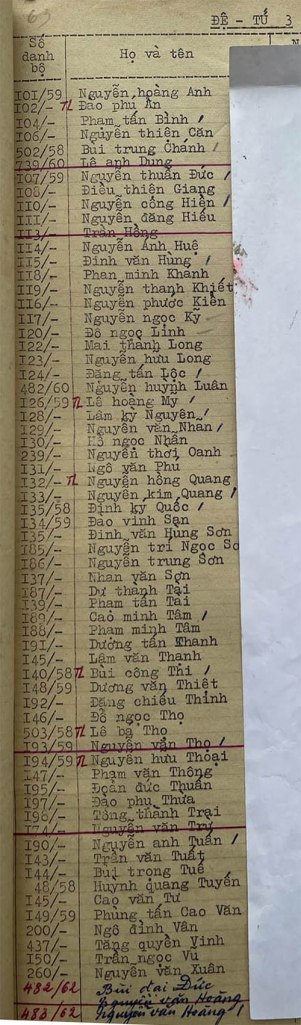 ĐỆ - TỨ 3
Số danh bộ Họ và tên
I01/59 Nguyễn hoàng Anh
I02/- TL Đào phú Ân
I04/- Phạm tấn Bình /
I06/- Nguyễn thiên Căn
502/58 Bùi trung Chánh /
739/60 Lê anh Dung
I07/59 Nguyễn thuần Đức /
I08/- Điều thiên Giang
II0/- Nguyễn công Hiện /
III/- Nguyễn đăng Hiếu
II3/- Trần Hồng
II4/- Nguyễn Ánh Huê
II5/- Đinh văn Hùng /
II8/- Phan minh Khanh
II9/- Nguyễn thanh Khiết
II6/- Nguyễn phước Kiển
II7/- Nguyễn ngọc Kỹ
I20/- Đỗ ngọc Linh
I22/- Mai thành Long
I23/- Nguyễn hữu Long
I24/- Đặng tấn Lộc /
482/60 Nguyễn huỳnh Luân
I26/59 TL Lê hoàng My /
I28/- Lâm kỳ Nguyên /
I29/- Nguyễn văn Nhan /
I30/- Hồ ngọc Nhân
239/- Nguyễn thới Oanh
I31/- Ngô văn Phu
I32/- TL Nguyễn hồng Quang
I33/- Nguyễn kim Quang /
I35/58 Đinh kỳ Quốc /
I34/59 Đào vinh Sản
I35/- Đinh văn Hùng Sơn
I85/- Nguyễn trí Ngọc
I86/- Nguyễn trung Sơn
I37/- Nhan văn Sơn
I87/- Dư thành Tài
I39/- Phạm tấn Tài
I89/- Cao minh Tâm /
I88/- Phạm minh Tâm
I9I/- Dương tấn Thanh
I45/- Lâm văn Thanh
I40/58 TL Bùi công Thi /
I48/59 Dương văn Thiệt
I92/- Đặng chiếu Thinh
I46/- Đỗ ngọc Thọ
503/58 TL Lê bá Thọ
I93/59 Nguyễn văn Thọ /
I94/59 TL Nguyễn hữu Thoại
I47/- Phạm văn Thông
I95/- Đoàn đức Thuần
I97/- Đào phụ Thừa
I98/- Tống thành Trai
I74/- Nguyễn văn Trự
I90/- Nguyễn anh Tuấn /
I43/- Trần văn Tuất
I44/- Bùi trọng Tuệ /
48/58 Huỳnh quang Tuyến
I45/- Cao văn Tư
I49/59 Phùng tấn Cao Vân
200/- Ngô đình Vân
437/- Tăng quyền Vinh
I50/- Trần ngọc Vũ
260/- Nguyễn văn Xuân
482/62 Bùi đại Đức
Nguyễn văn Hoàng
483/62 Nguyễn văn Hoàng /